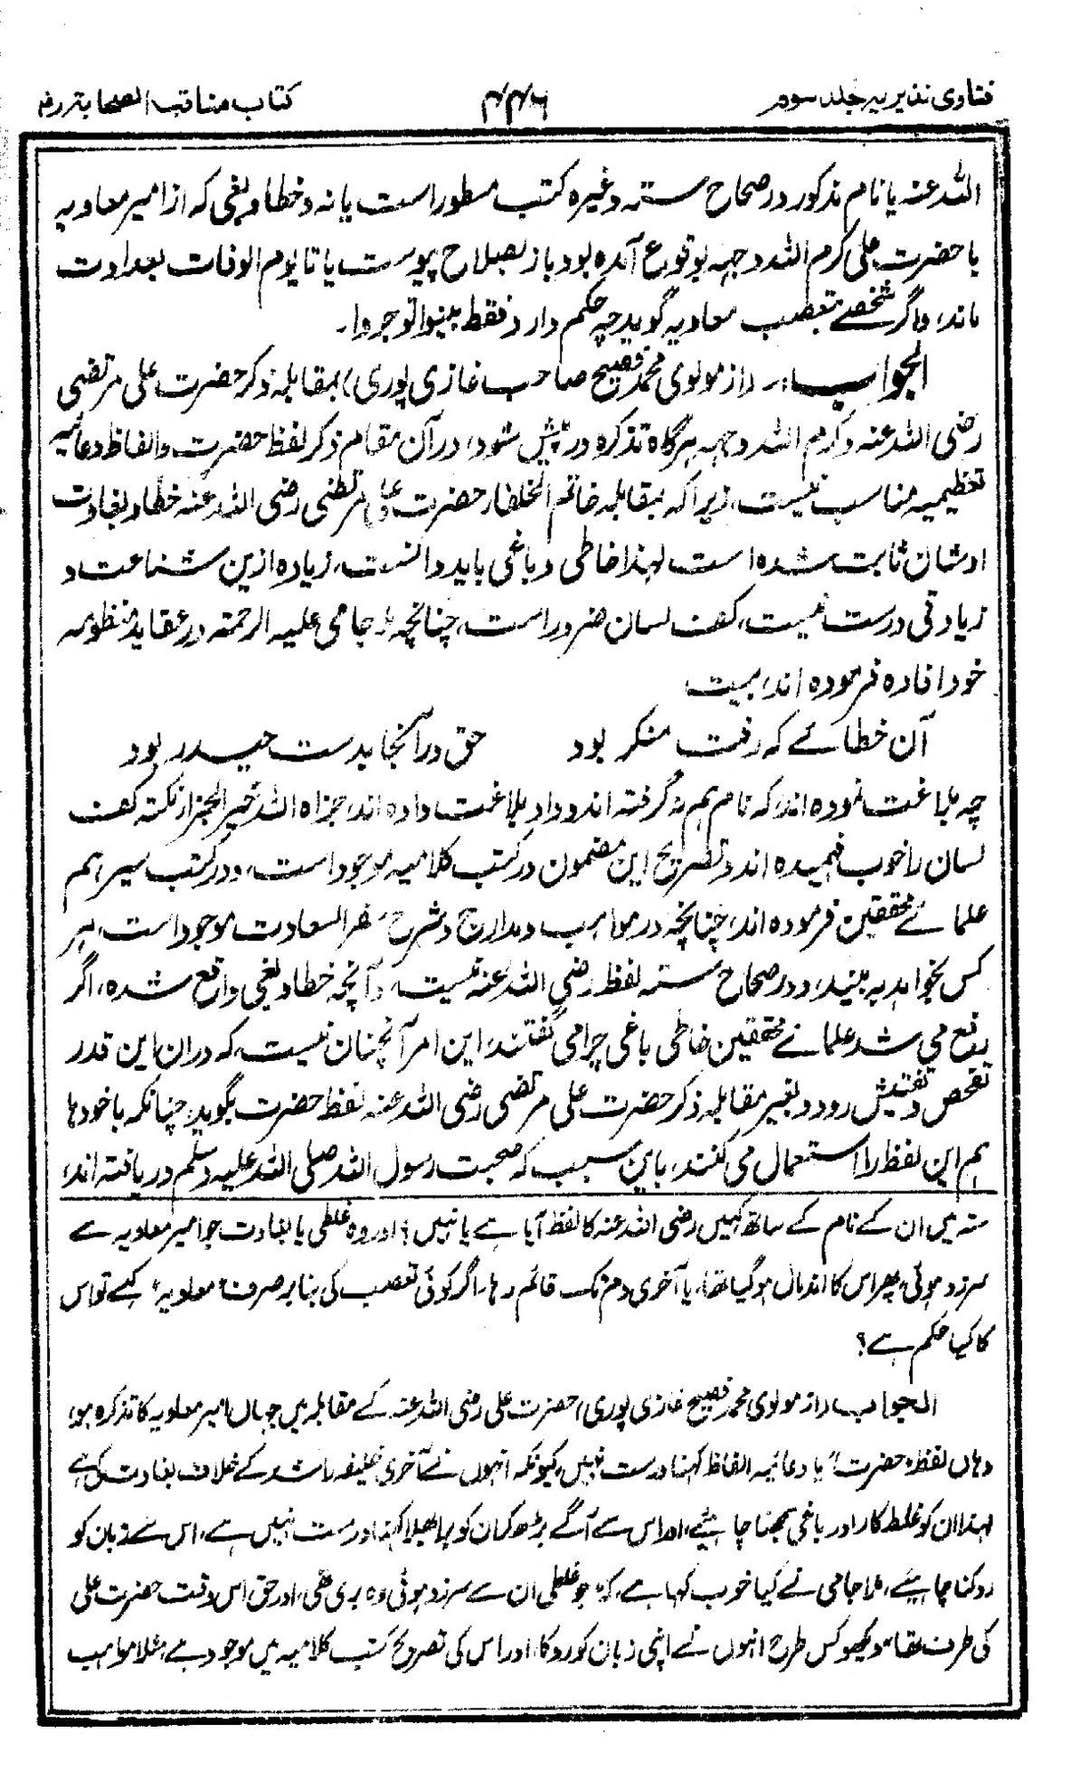 فتاوی نذیریہ جلد سوم ۴۴۶ کتاب مناقب الصحابۃ رض
اللہ عنہ یا نام مذکور در صحاح ستہ وغیرہ کتب مسطور است یا نہ و خطا و بغی کہ از امیر معاویہ
با حضرت علی کرم اللہ وجہہ بوقوع آمدہ بود باز بصلاح پیوست یا تا یوم الوفات بعداوت
ماند، و اگر شخصے بتعصب معاویہ گوید چہ حکم دارد فقط بینوا توجروا۔
الجواب:۔ (از مولوی محمد فصیح صاحب غازی پوری) بمقابلہ ذکر حضرت علی مرتضی
رضی اللہ عنہ و کرم اللہ وجہہ ہرگاہ تذکرہ در پیش شود، در آن مقام ذکر لفظ حضرت و الفاظ دعائیہ
تعظیمیہ مناسب نیست، زیرا کہ بمقابلہ خاتم الخلفاء حضرت علی مرتضی رضی اللہ عنہ خطا و بغاوت
اوشان ثابت شدہ است لہذا خاطی و باغی باید دانست، زیادہ ازین شناعت و
زیادتی درست نیست، کف لسان ضرور است، چنانچہ ملا جامی علیہ الرحمۃ در عقاید منظومہ
خود افادہ فرمودہ اند، بیت
آن خطائے کہ رفت منکر بود حق در آنجا بدست حیدر بود
چہ بلاغت نمودہ اند، کہ نام ہم نہ گرفتہ اند و داد بلاغت دادہ اند، جزاہ اللہ خیر الجزاء نکتہ کف
لسان را خوب فہمیدہ اند و تصریح این مضمون در کتب کلامیہ موجود است، و در کتب سیر ہم
علمائے محققین فرمودہ اند، چنانچہ در مواہب و مدارج و شرح سفر السعادت موجود است، ہر
کس بخواہد بہ بیند، و در صحاح ستہ لفظ رضی اللہ عنہ نیست، و آنچہ خطا و بغی واقع شدہ، اگر
رفع می شد علمائے محققین خاطی باغی چرا می گفتند، این امر آنچنان نیست، کہ در ان این قدر
تفحص و تفتیش رود و بغیر مقابلہ ذکر حضرت علی مرتضی رضی اللہ عنہ لفظ حضرت بگوید، چنانکہ با خودہا
ہم این لفظ را استعمال می کنند، باین سبب کہ صحبت رسول اللہ صلی اللہ علیہ وسلم دریافتہ اند،
ستہ میں ان کے نام کے ساتھ کہیں رضی اللہ عنہ کا لفظ آیا ہے یا نہیں؟ اور وہ غلطی یا بغاوت جو امیر معاویہ سے
سرزد ہوئی، پھر اس کا اندمال ہو گیا تھا، یا آخری دم تک قائم رہا، اگر کوئی تعصب کی بنا پر صرف "معاویہ" کہے تو اس
کا کیا حکم ہے؟
الجواب (از مولوی محمد فصیح غازی پوری) حضرت علی رضی اللہ عنہ کے مقابلہ میں جہاں امیر معاویہ کا تذکرہ ہو،
وہاں لفظ "حضرت" یا دعائیہ الفاظ کہنا درست نہیں، کیونکہ انہوں نے آخری خلیفہ راشد کے خلاف بغاوت کی ہے
لہذا ان کو غلط کار اور باغی سمجھنا چاہئیے، اور اس سے آگے بڑھ کر ان کو برا بھلا کہنا درست نہیں ہے، اس سے زبان کو
روکنا چاہئیے، ملا جامی نے کیا خوب کہا ہے، کہ "جو غلطی ان سے سرزد ہوئی وہ بری تھی، اور حق اس وقت حضرت علی
کی طرف تھا" دیکھو کس طرح انہوں نے اپنی زبان کو روکا، اور اس کی تصریح کتب کلامیہ میں موجود ہے، مثلا مواہب